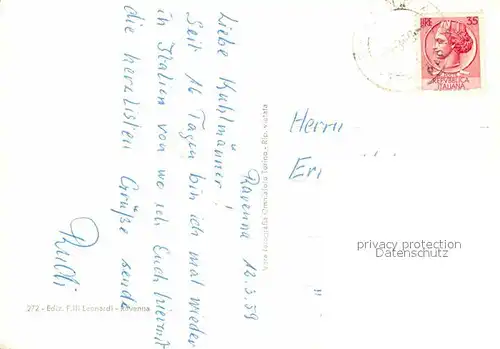 Ravenna 12.3.59
Liebe Kuhlmänner!
Seit 16 Tagen bin ich mal wieder
in Italien von wo ich Euch hiermit
die herzlichsten Grüße sende
Rudi
Herrn
Er
LIRE 35
REPVBBLICA
ITALIANA
Vera Fotografia - Rip. vietata
272 - Ediz. F.lli Leonardi - Ravenna
privacy protection
Datenschutz